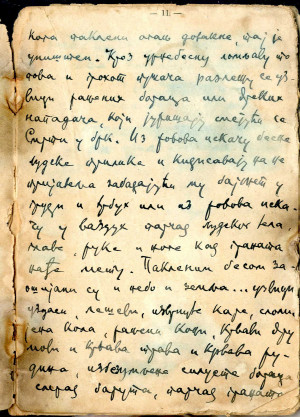 — 11 —
кога паклени огањ дохвати, тај је
уништен. Кроз урнебесну ломљаву то
пова и грохот пушака разлежу се уз
вици рањених бораца или дивљих
нападача, који јуришају смејући се
Смрти у брк. Из ровова искачу беске
људске прилике и кидисавају на не
пријатеља забадајући му бајонет у
груди и трбух или из ровова иска-
чу у ваздух парчад људских тела,
главе, руке и ноге кад граната
нађе мету. Пакленим бесом за-
ошијани су и небо и земља... узвици
уздаси, лешеви, изврнуте каре, сломљ
ена кола, рањени коњи, крвави дру
мови и крвава трава и крвава ру-
дина, избезумљене силуете бораца
смрад барута, парчад граната